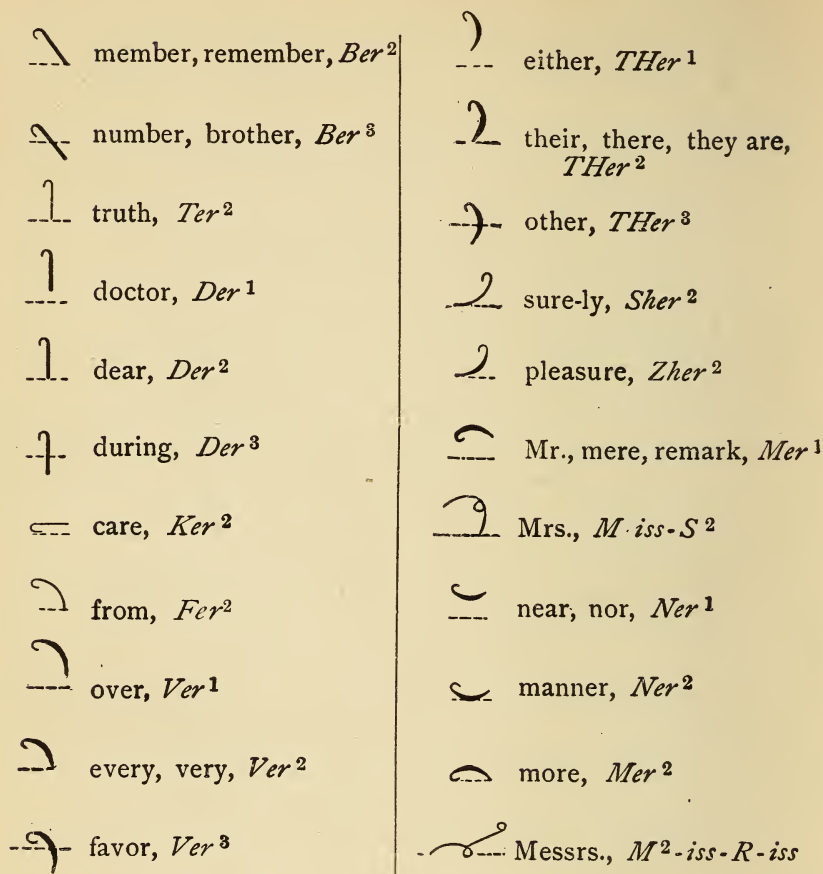 member, remember, Ber²
number, brother, Ber³
truth, Ter²
doctor, Der¹
dear, Der²
during, Der³
care, Ker²
from, Fer²
over, Ver¹
every, very, Ver²
favor, Ver³
either, THer¹
their, there, they are,
THer²
other, THer³
sure-ly, Sher²
pleasure, Zher²
Mr., mere, remark, Mer¹
Mrs., M-iss-S²
near, nor, Ner¹
manner, Ner²
more, Mer²
Messrs., M²-iss-R-iss